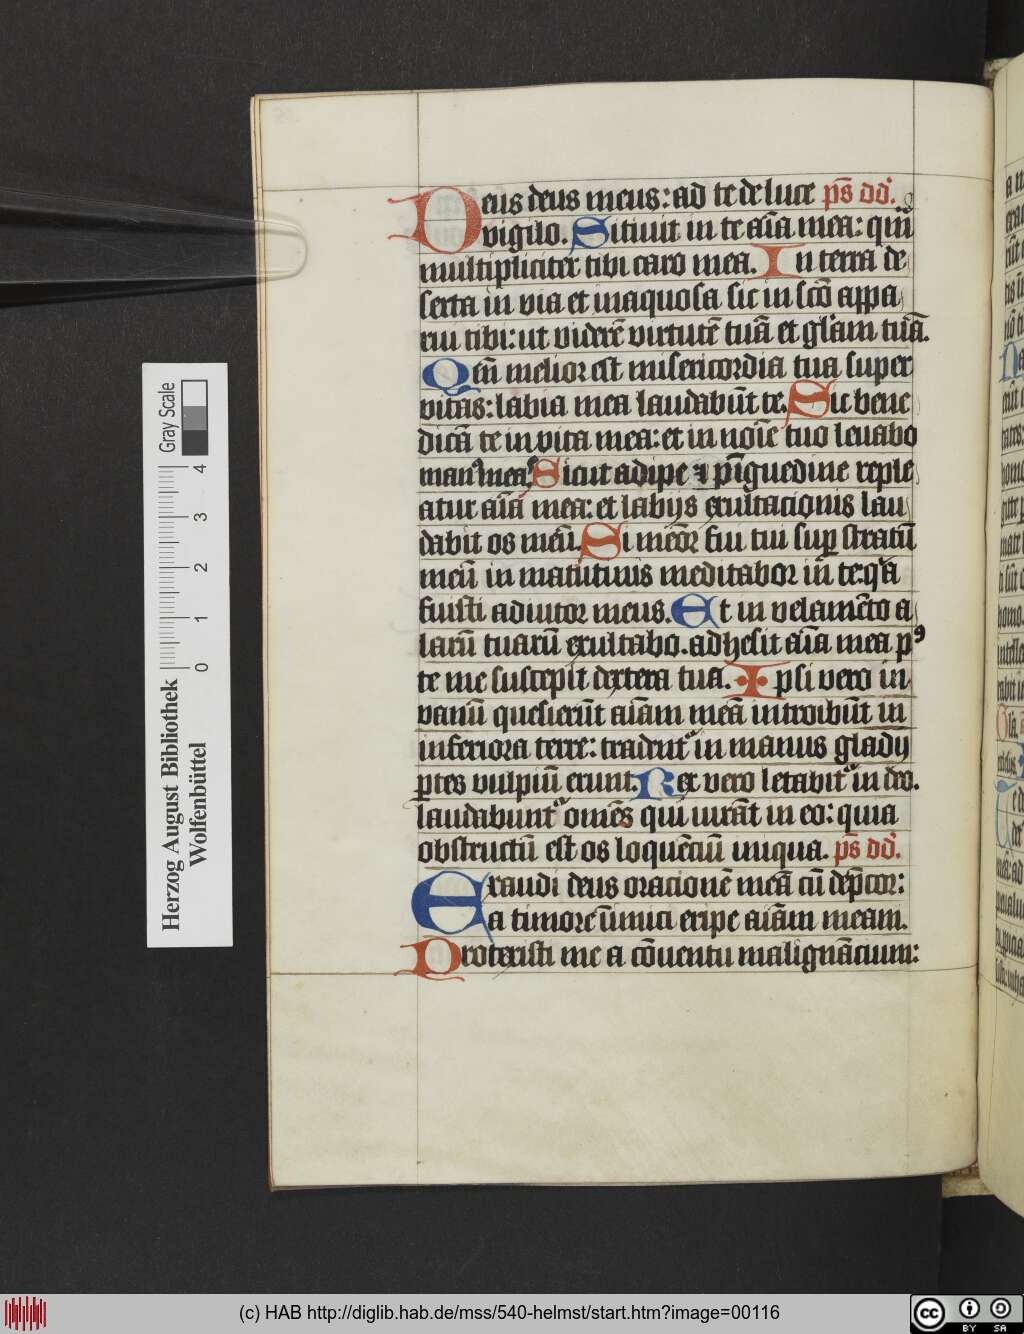 Deus deus meus: ad te de luce ps̄ dd̓.
vigilo. Sitiuit in te aīa mea: qm̄
multipliciter tibi caro mea. In terra de
serta in via et inaquosa sic in scō appa
rui tibi: ut viderē virtutē tuā et gl̓am tuā.
Qm̄ melior est misericordia tua super
vitas: labia mea laudabūt te. Sic bene
dicā te in vita mea: et in noīe tuo leuabo
manꝰ meas Sicut adipe ⁊ pīguedine reple
atur aīa mea: et labijs exultacionis lau
dabit os meū. Si meōr fui tui sup̱ stratū
meū in matutinis meditabor in te: qͥa
fuisti adiutor meus. Et in velamēto a
larū tuarū exultabo. adhesit aīa mea pꝰ
te me suscepit dextera tua. Ipsi vero in
vanū quesierūt aīam meā introibūt in
inferiora terre: tradent᷑ in manus gladij
ꝑtes vulpiū erunt. Rex vero letabit᷑ in deo.
laudabunt᷑ om̄es qui iurāt in eo: quia
obstructū est os loquēciū iniqua. ps̄ dd̓.
Exaudi deus oracionē meā cū dep̄cor:
a timore īimici eripe aīam meam.
Protexisti me a cōuentu malignācium:
Herzog August Bibliothek
Wolfenbüttel
0 1 2 3 4
Gray Scale
(c) HAB http://diglib.hab.de/mss/540-helmst/start.htm?image=00116
cc BY SA